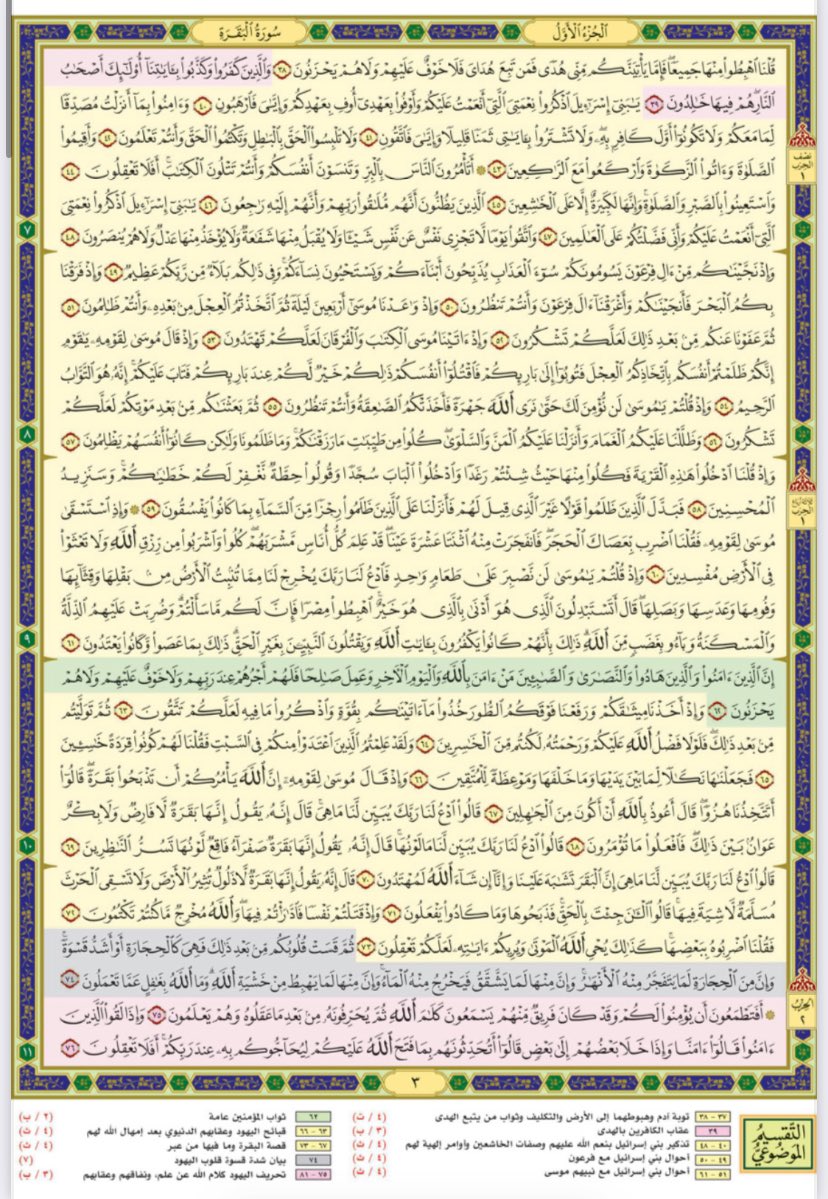 الجُزْءُ الأَوَّلُ
سُورَةُ البَقَرَةِ
قُلْنَا ٱهْبِطُوا۟ مِنْهَا جَمِيعًا ۖ فَإِمَّا يَأْتِيَنَّكُم مِّنِّى هُدًى فَمَن تَبِعَ هُدَاىَ فَلَا خَوْفٌ عَلَيْهِمْ وَلَا هُمْ يَحْزَنُونَ ٣٨ وَٱلَّذِينَ كَفَرُوا۟ وَكَذَّبُوا۟ بِـَٔايَـٰتِنَآ أُو۟لَـٰٓئِكَ أَصْحَـٰبُ
ٱلنَّارِ ۖ هُمْ فِيهَا خَـٰلِدُونَ ٣٩ يَـٰبَنِىٓ إِسْرَٰٓءِيلَ ٱذْكُرُوا۟ نِعْمَتِىَ ٱلَّتِىٓ أَنْعَمْتُ عَلَيْكُمْ وَأَوْفُوا۟ بِعَهْدِىٓ أُوفِ بِعَهْدِكُمْ وَإِيَّـٰىَ فَٱرْهَبُونِ ٤٠ وَءَامِنُوا۟ بِمَآ أَنزَلْتُ مُصَدِّقًا
لِّمَا مَعَكُمْ وَلَا تَكُونُوٓا۟ أَوَّلَ كَافِرٍۭ بِهِۦ ۖ وَلَا تَشْتَرُوا۟ بِـَٔايَـٰتِى ثَمَنًا قَلِيلًا وَإِيَّـٰىَ فَٱتَّقُونِ ٤١ وَلَا تَلْبِسُوا۟ ٱلْحَقَّ بِٱلْبَـٰطِلِ وَتَكْتُمُوا۟ ٱلْحَقَّ وَأَنتُمْ تَعْلَمُونَ ٤٢ وَأَقِيمُوا۟
ٱلصَّلَوٰةَ وَءَاتُوا۟ ٱلزَّكَوٰةَ وَٱرْكَعُوا۟ مَعَ ٱلرَّٰكِعِينَ ٤٣ ۞ أَتَأْمُرُونَ ٱلنَّاسَ بِٱلْبِرِّ وَتَنسَوْنَ أَنفُسَكُمْ وَأَنتُمْ تَتْلُونَ ٱلْكِتَـٰبَ ۚ أَفَلَا تَعْقِلُونَ ٤٤
وَٱسْتَعِينُوا۟ بِٱلصَّبْرِ وَٱلصَّلَوٰةِ ۚ وَإِنَّهَا لَكَبِيرَةٌ إِلَّا عَلَى ٱلْخَـٰشِعِينَ ٤٥ ٱلَّذِينَ يَظُنُّونَ أَنَّهُم مُّلَـٰقُوا۟ رَبِّهِمْ وَأَنَّهُمْ إِلَيْهِ رَٰجِعُونَ ٤٦ يَـٰبَنِىٓ إِسْرَٰٓءِيلَ ٱذْكُرُوا۟ نِعْمَتِىَ
ٱلَّتِىٓ أَنْعَمْتُ عَلَيْكُمْ وَأَنِّى فَضَّلْتُكُمْ عَلَى ٱلْعَـٰلَمِينَ ٤٧ وَٱتَّقُوا۟ يَوْمًا لَّا تَجْزِى نَفْسٌ عَن نَّفْسٍ شَيْـًٔا وَلَا يُقْبَلُ مِنْهَا شَفَـٰعَةٌ وَلَا يُؤْخَذُ مِنْهَا عَدْلٌ وَلَا هُمْ يُنصَرُونَ ٤٨
وَإِذْ نَجَّيْنَـٰكُم مِّنْ ءَالِ فِرْعَوْنَ يَسُومُونَكُمْ سُوٓءَ ٱلْعَذَابِ يُذَبِّحُونَ أَبْنَآءَكُمْ وَيَسْتَحْيُونَ نِسَآءَكُمْ ۚ وَفِى ذَٰلِكُم بَلَآءٌ مِّن رَّبِّكُمْ عَظِيمٌ ٤٩ وَإِذْ فَرَقْنَا
بِكُمُ ٱلْبَحْرَ فَأَنجَيْنَـٰكُمْ وَأَغْرَقْنَآ ءَالَ فِرْعَوْنَ وَأَنتُمْ تَنظُرُونَ ٥٠ وَإِذْ وَٰعَدْنَا مُوسَىٰٓ أَرْبَعِينَ لَيْلَةً ثُمَّ ٱتَّخَذْتُمُ ٱلْعِجْلَ مِنۢ بَعْدِهِۦ وَأَنتُمْ ظَـٰلِمُونَ ٥١
ثُمَّ عَفَوْنَا عَنكُم مِّنۢ بَعْدِ ذَٰلِكَ لَعَلَّكُمْ تَشْكُرُونَ ٥٢ وَإِذْ ءَاتَيْنَا مُوسَى ٱلْكِتَـٰبَ وَٱلْفُرْقَانَ لَعَلَّكُمْ تَهْتَدُونَ ٥٣ وَإِذْ قَالَ مُوسَىٰ لِقَوْمِهِۦ يَـٰقَوْمِ
إِنَّكُمْ ظَلَمْتُمْ أَنفُسَكُم بِٱتِّخَاذِكُمُ ٱلْعِجْلَ فَتُوبُوٓا۟ إِلَىٰ بَارِئِكُمْ فَٱقْتُلُوٓا۟ أَنفُسَكُمْ ذَٰلِكُمْ خَيْرٌ لَّكُمْ عِندَ بَارِئِكُمْ فَتَابَ عَلَيْكُمْ ۚ إِنَّهُۥ هُوَ ٱلتَّوَّابُ
ٱلرَّحِيمُ ٥٤ وَإِذْ قُلْتُمْ يَـٰمُوسَىٰ لَن نُّؤْمِنَ لَكَ حَتَّىٰ نَرَى ٱللَّهَ جَهْرَةً فَأَخَذَتْكُمُ ٱلصَّـٰعِقَةُ وَأَنتُمْ تَنظُرُونَ ٥٥ ثُمَّ بَعَثْنَـٰكُم مِّنۢ بَعْدِ مَوْتِكُمْ لَعَلَّكُمْ
تَشْكُرُونَ ٥٦ وَظَلَّلْنَا عَلَيْكُمُ ٱلْغَمَامَ وَأَنزَلْنَا عَلَيْكُمُ ٱلْمَنَّ وَٱلسَّلْوَىٰ ۖ كُلُوا۟ مِن طَيِّبَـٰتِ مَا رَزَقْنَـٰكُمْ ۖ وَمَا ظَلَمُونَا وَلَـٰكِن كَانُوٓا۟ أَنفُسَهُمْ يَظْلِمُونَ ٥٧
وَإِذْ قُلْنَا ٱدْخُلُوا۟ هَـٰذِهِ ٱلْقَرْيَةَ فَكُلُوا۟ مِنْهَا حَيْثُ شِئْتُمْ رَغَدًا وَٱدْخُلُوا۟ ٱلْبَابَ سُجَّدًا وَقُولُوا۟ حِطَّةٌ نَّغْفِرْ لَكُمْ خَطَـٰيَـٰكُمْ ۚ وَسَنَزِيدُ
ٱلْمُحْسِنِينَ ٥٨ فَبَدَّلَ ٱلَّذِينَ ظَلَمُوا۟ قَوْلًا غَيْرَ ٱلَّذِى قِيلَ لَهُمْ فَأَنزَلْنَا عَلَى ٱلَّذِينَ ظَلَمُوا۟ رِجْزًا مِّنَ ٱلسَّمَآءِ بِمَا كَانُوا۟ يَفْسُقُونَ ٥٩ ۞ وَإِذِ ٱسْتَسْقَىٰ
مُوسَىٰ لِقَوْمِهِۦ فَقُلْنَا ٱضْرِب بِّعَصَاكَ ٱلْحَجَرَ ۖ فَٱنفَجَرَتْ مِنْهُ ٱثْنَتَا عَشْرَةَ عَيْنًا ۖ قَدْ عَلِمَ كُلُّ أُنَاسٍ مَّشْرَبَهُمْ ۖ كُلُوا۟ وَٱشْرَبُوا۟ مِن رِّزْقِ ٱللَّهِ وَلَا تَعْثَوْا۟
فِى ٱلْأَرْضِ مُفْسِدِينَ ٦٠ وَإِذْ قُلْتُمْ يَـٰمُوسَىٰ لَن نَّصْبِرَ عَلَىٰ طَعَامٍ وَٰحِدٍ فَٱدْعُ لَنَا رَبَّكَ يُخْرِجْ لَنَا مِمَّا تُنۢبِتُ ٱلْأَرْضُ مِنۢ بَقْلِهَا وَقِثَّآئِهَا
وَفُومِهَا وَعَدَسِهَا وَبَصَلِهَا ۖ قَالَ أَتَسْتَبْدِلُونَ ٱلَّذِى هُوَ أَدْنَىٰ بِٱلَّذِى هُوَ خَيْرٌ ۚ ٱهْبِطُوا۟ مِصْرًا فَإِنَّ لَكُم مَّا سَأَلْتُمْ ۗ وَضُرِبَتْ عَلَيْهِمُ ٱلذِّلَّةُ
وَٱلْمَسْكَنَةُ وَبَآءُو بِغَضَبٍ مِّنَ ٱللَّهِ ۗ ذَٰلِكَ بِأَنَّهُمْ كَانُوا۟ يَكْفُرُونَ بِـَٔايَـٰتِ ٱللَّهِ وَيَقْتُلُونَ ٱلنَّبِيِّـۧنَ بِغَيْرِ ٱلْحَقِّ ۗ ذَٰلِكَ بِمَا عَصَوا۟ وَّكَانُوا۟ يَعْتَدُونَ ٦١
إِنَّ ٱلَّذِينَ ءَامَنُوا۟ وَٱلَّذِينَ هَادُوا۟ وَٱلنَّصَـٰرَىٰ وَٱلصَّـٰبِـِٔينَ مَنْ ءَامَنَ بِٱللَّهِ وَٱلْيَوْمِ ٱلْـَٔاخِرِ وَعَمِلَ صَـٰلِحًا فَلَهُمْ أَجْرُهُمْ عِندَ رَبِّهِمْ وَلَا خَوْفٌ عَلَيْهِمْ وَلَا هُمْ
يَحْزَنُونَ ٦٢ وَإِذْ أَخَذْنَا مِيثَـٰقَكُمْ وَرَفَعْنَا فَوْقَكُمُ ٱلطُّورَ خُذُوا۟ مَآ ءَاتَيْنَـٰكُم بِقُوَّةٍ وَٱذْكُرُوا۟ مَا فِيهِ لَعَلَّكُمْ تَتَّقُونَ ٦٣ ثُمَّ تَوَلَّيْتُم
مِّنۢ بَعْدِ ذَٰلِكَ ۖ فَلَوْلَا فَضْلُ ٱللَّهِ عَلَيْكُمْ وَرَحْمَتُهُۥ لَكُنتُم مِّنَ ٱلْخَـٰسِرِينَ ٦٤ وَلَقَدْ عَلِمْتُمُ ٱلَّذِينَ ٱعْتَدَوْا۟ مِنكُمْ فِى ٱلسَّبْتِ فَقُلْنَا لَهُمْ كُونُوا۟ قِرَدَةً خَـٰسِـِٔينَ
٦٥ فَجَعَلْنَـٰهَا نَكَـٰلًا لِّمَا بَيْنَ يَدَيْهَا وَمَا خَلْفَهَا وَمَوْعِظَةً لِّلْمُتَّقِينَ ٦٦ وَإِذْ قَالَ مُوسَىٰ لِقَوْمِهِۦٓ إِنَّ ٱللَّهَ يَأْمُرُكُمْ أَن تَذْبَحُوا۟ بَقَرَةً ۖ قَالُوٓا۟
أَتَتَّخِذُنَا هُزُوًا ۖ قَالَ أَعُوذُ بِٱللَّهِ أَنْ أَكُونَ مِنَ ٱلْجَـٰهِلِينَ ٦٧ قَالُوا۟ ٱدْعُ لَنَا رَبَّكَ يُبَيِّن لَّنَا مَا هِىَ ۚ قَالَ إِنَّهُۥ يَقُولُ إِنَّهَا بَقَرَةٌ لَّا فَارِضٌ وَلَا بِكْرٌ
عَوَانٌۢ بَيْنَ ذَٰلِكَ ۖ فَٱفْعَلُوا۟ مَا تُؤْمَرُونَ ٦٨ قَالُوا۟ ٱدْعُ لَنَا رَبَّكَ يُبَيِّن لَّنَا مَا لَوْنُهَا ۚ قَالَ إِنَّهُۥ يَقُولُ إِنَّهَا بَقَرَةٌ صَفْرَآءُ فَاقِعٌ لَّوْنُهَا تَسُرُّ ٱلنَّـٰظِرِينَ ٦٩
قَالُوا۟ ٱدْعُ لَنَا رَبَّكَ يُبَيِّن لَّنَا مَا هِىَ إِنَّ ٱلْبَقَرَ تَشَـٰبَهَ عَلَيْنَا وَإِنَّآ إِن شَآءَ ٱللَّهُ لَمُهْتَدُونَ ٧٠ قَالَ إِنَّهُۥ يَقُولُ إِنَّهَا بَقَرَةٌ لَّا ذَلُولٌ تُثِيرُ ٱلْأَرْضَ وَلَا تَسْقِى ٱلْحَرْثَ
مُسَلَّمَةٌ لَّا شِيَةَ فِيهَا ۚ قَالُوا۟ ٱلْـَٔـٰنَ جِئْتَ بِٱلْحَقِّ ۚ فَذَبَحُوهَا وَمَا كَادُوا۟ يَفْعَلُونَ ٧١ وَإِذْ قَتَلْتُمْ نَفْسًا فَٱدَّٰرَْٰٔتُمْ فِيهَا ۖ وَٱللَّهُ مُخْرِجٌ مَّا كُنتُمْ تَكْتُمُونَ ٧٢
فَقُلْنَا ٱضْرِبُوهُ بِبَعْضِهَا ۚ كَذَٰلِكَ يُحْىِ ٱللَّهُ ٱلْمَوْتَىٰ وَيُرِيكُمْ ءَايَـٰتِهِۦ لَعَلَّكُمْ تَعْقِلُونَ ٧٣ ثُمَّ قَسَتْ قُلُوبُكُم مِّنۢ بَعْدِ ذَٰلِكَ فَهِىَ كَٱلْحِجَارَةِ أَوْ أَشَدُّ قَسْوَةً ۚ
وَإِنَّ مِنَ ٱلْحِجَارَةِ لَمَا يَتَفَجَّرُ مِنْهُ ٱلْأَنْهَـٰرُ ۚ وَإِنَّ مِنْهَا لَمَا يَشَّقَّقُ فَيَخْرُجُ مِنْهُ ٱلْمَآءُ ۚ وَإِنَّ مِنْهَا لَمَا يَهْبِطُ مِنْ خَشْيَةِ ٱللَّهِ ۗ وَمَا ٱللَّهُ بِغَـٰفِلٍ عَمَّا تَعْمَلُونَ ٧٤
۞ أَفَتَطْمَعُونَ أَن يُؤْمِنُوا۟ لَكُمْ وَقَدْ كَانَ فَرِيقٌ مِّنْهُمْ يَسْمَعُونَ كَلَـٰمَ ٱللَّهِ ثُمَّ يُحَرِّفُونَهُۥ مِنۢ بَعْدِ مَا عَقَلُوهُ وَهُمْ يَعْلَمُونَ ٧٥ وَإِذَا لَقُوا۟ ٱلَّذِينَ
ءَامَنُوا۟ قَالُوٓا۟ ءَامَنَّا وَإِذَا خَلَا بَعْضُهُمْ إِلَىٰ بَعْضٍ قَالُوٓا۟ أَتُحَدِّثُونَهُم بِمَا فَتَحَ ٱللَّهُ عَلَيْكُمْ لِيُحَآجُّوكُم بِهِۦ عِندَ رَبِّكُمْ ۚ أَفَلَا تَعْقِلُونَ ٧٦
نصف
الحزب
١
الحزب
١
الحزب
٢
٧
٨
٩
١٠
١١
٣
التَّقسِيمُ
المَوضُوعيُّ
٣٧ - ٣٨ توبة آدم وهبوطهما إلى الأرض والتكليف وثواب من يتبع الهدى (٤ / ث)
٣٩ عقاب الكافرين بالهدى (٣ / ب)
٤٠ - ٤٨ تذكير بني إسرائيل بنعم الله عليهم وصفات الخاشعين وأوامر إلهية لهم (٤ / ث)
٤٩ - ٥٠ أحوال بني إسرائيل مع فرعون (٤ / ث)
٥١ - ٦١ أحوال بني إسرائيل مع نبيهم موسى (٤ / ث)
٦٢ ثواب المؤمنين عامة (٢ / ب)
٦٣ - ٦٦ قبائح اليهود وعقابهم الدنيوي بعد إمهال الله لهم (٤ / ث)
٦٧ - ٧٣ قصة البقرة وما فيها من عبر (٤ / ث)
٧٤ بيان شدة قسوة قلوب اليهود (٧)
٧٥ - ٨١ تحريف اليهود كلام الله عن علم، ونفاقهم وعقابهم (٣ / ب)